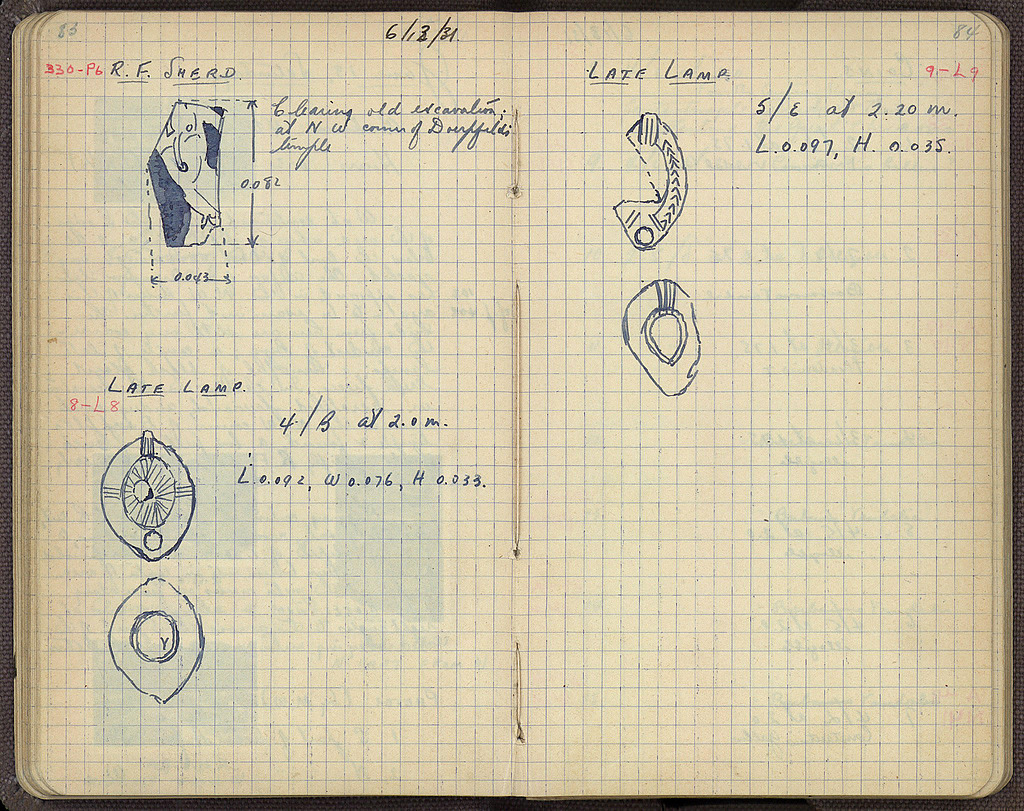 83
6/13/31.
330-P6 R. F. SHERD.
Clearing old excavation,
at N W corner of Doerpfeld's
temple
0.082
0.043
LATE LAMP.
8-L8
4/B at 2.0 m.
L. 0.092, W 0.076, H 0.033.
Y
84
LATE LAMP
9-L9
5/E at 2.20 m.
L. 0.097, H. 0.035.